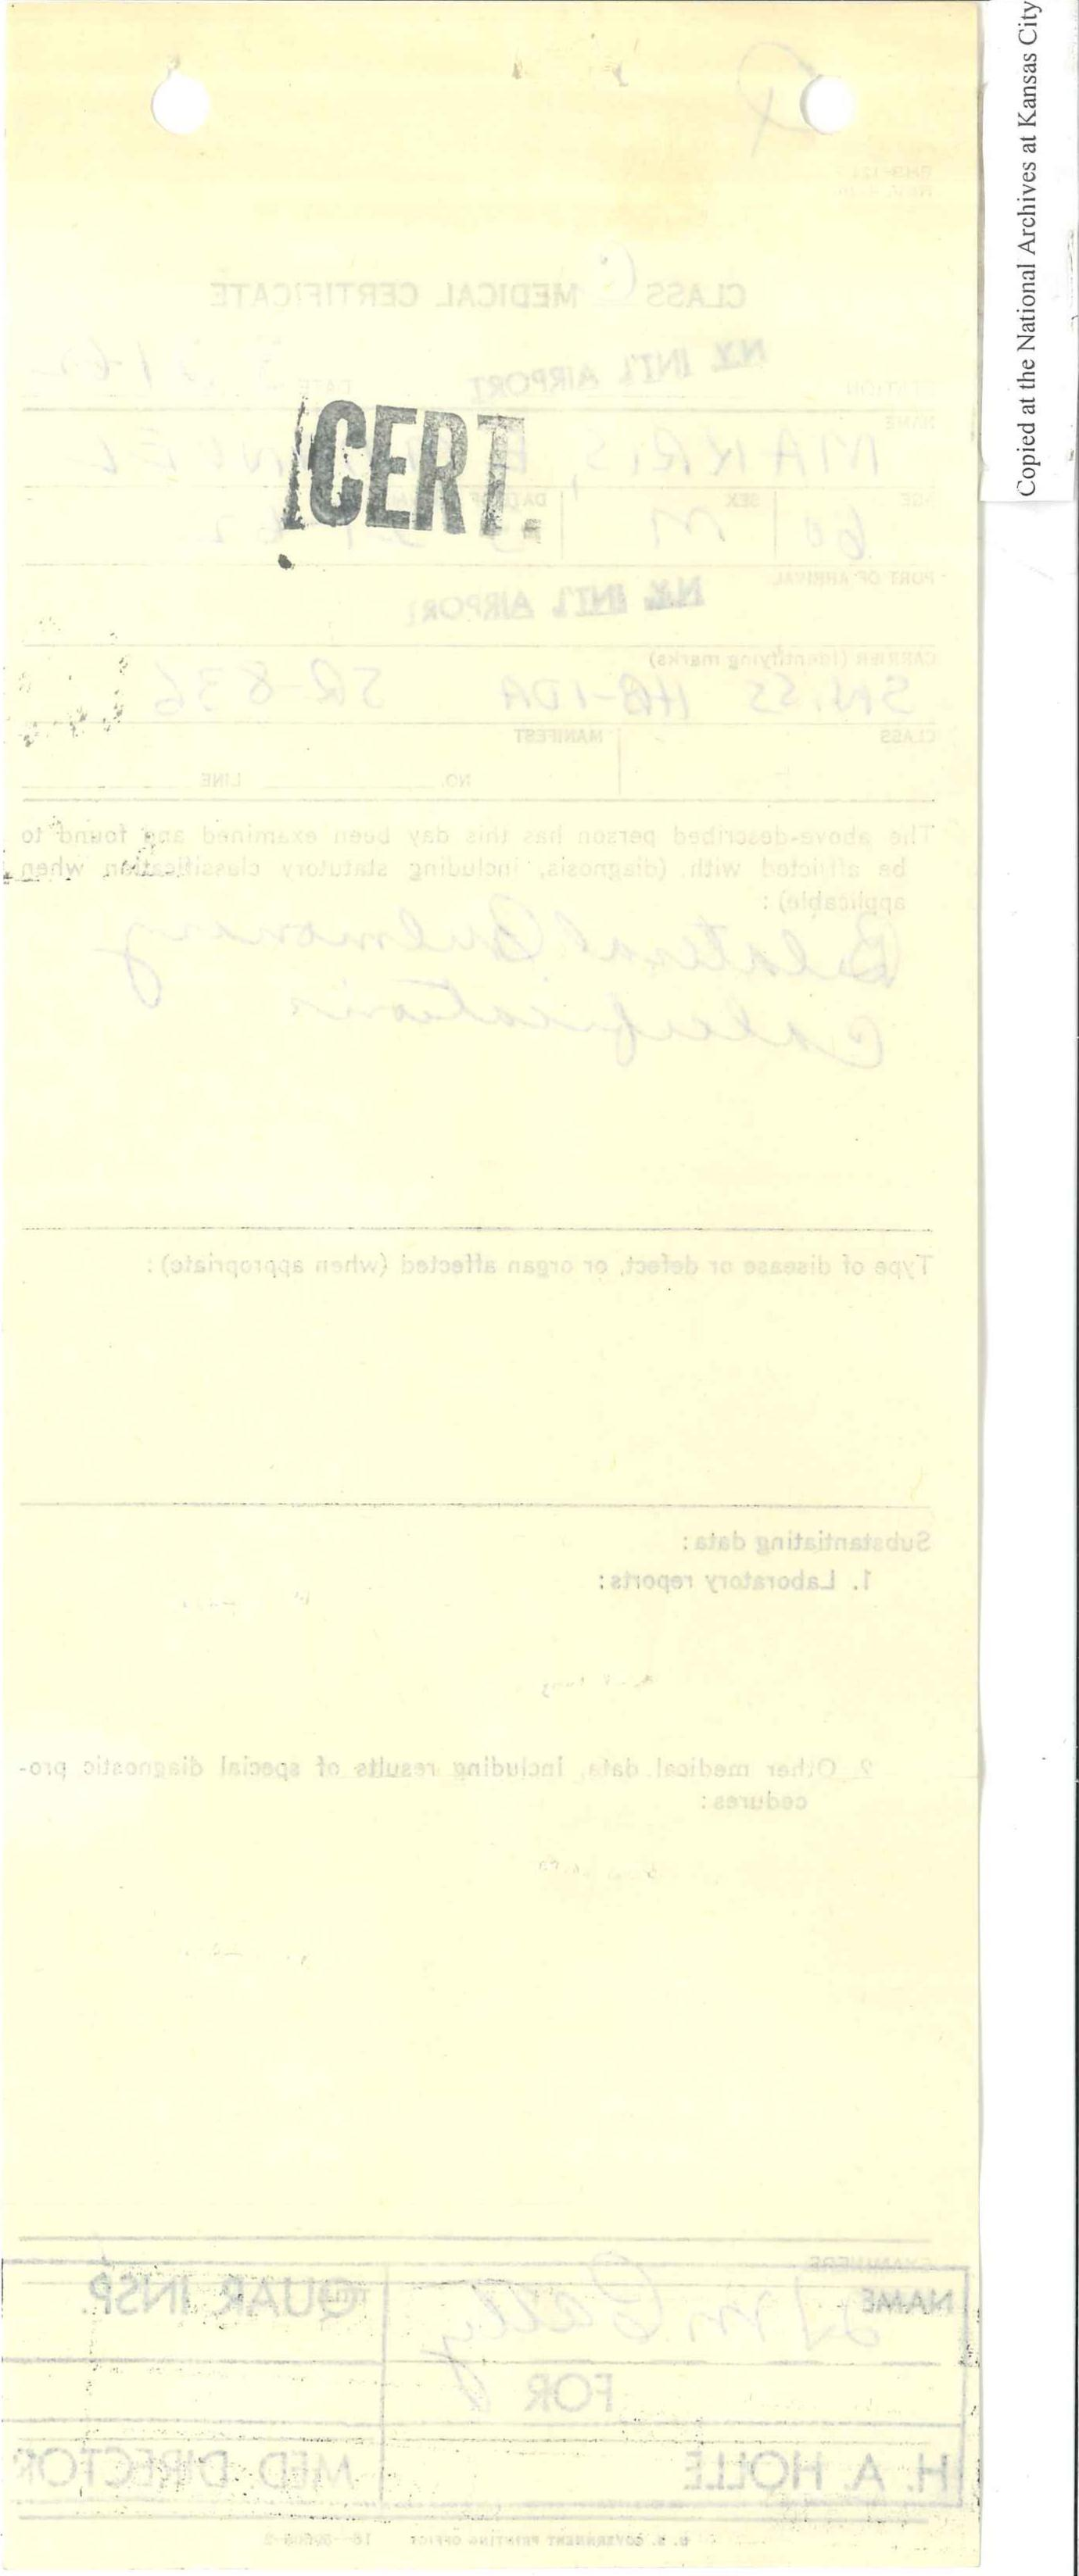 Copied at the National Archives at Kansas City
CLASS C MEDICAL CERTIFICATE
N.Y. INT'L AIRPORT
STATION
DATE
NAME
MAKRIS,
AGE
SEX
DATE OF
60
M
PORT OF ARRIVAL
N.Y. INT'L AIRPORT
CARRIER (Identifying marks)
SWISS HB-IDA SR-836
CLASS
MANIFEST
NO.
LINE
CERT.
The above-described person has this day been examined and found to
be afflicted with (diagnosis, including statutory classification when
applicable):
Bilateral Pulmonary
Calcifications
Type of disease or defect, or organ affected (when appropriate):
Substantiating data:
1. Laboratory reports:
2. Other medical data, including results of special diagnostic pro-
cedures:
EXAMINERS
NAME
QUAR INSP.
FOR
H. A. HOLLE
MED. DIRECTOR
U. S. GOVERNMENT PRINTING OFFICE